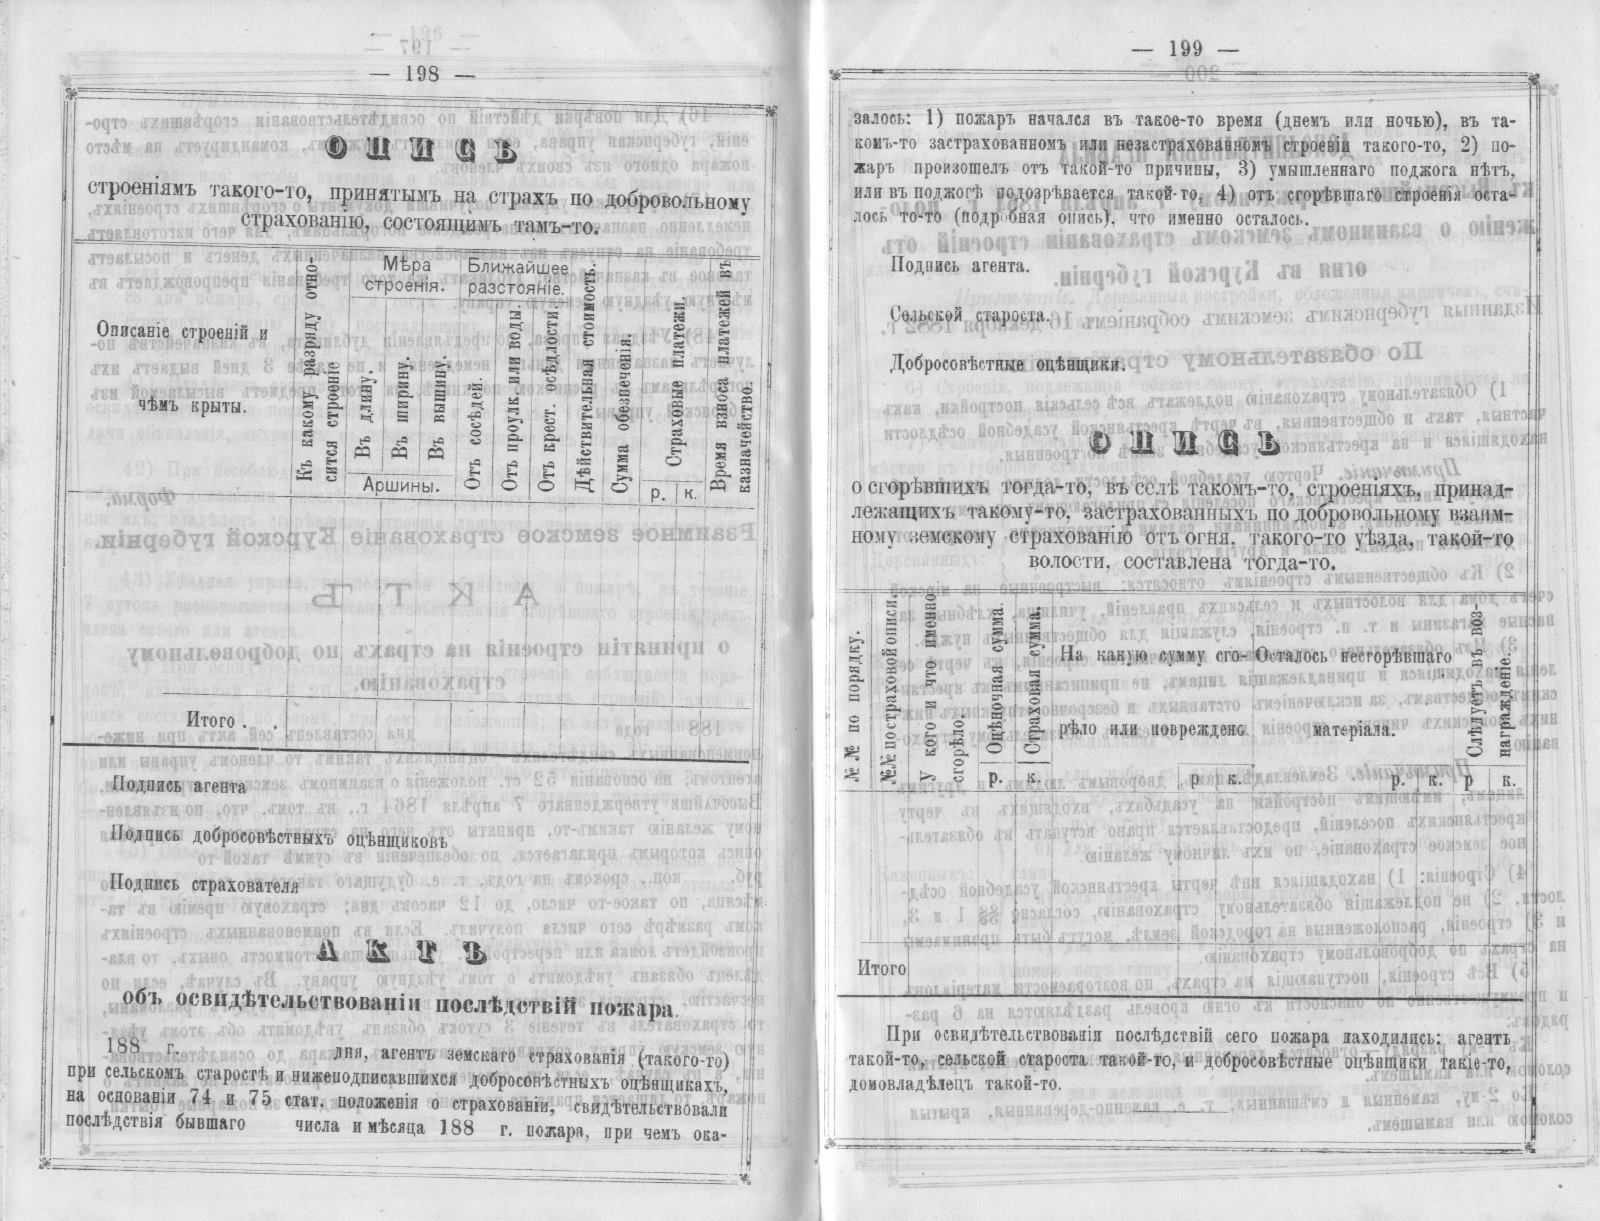 — 198 —
ОПИСЬ
строеніямъ такого-то, принятымъ на страхъ по добровольному
страхованію, состоящимъ тамъ-то.
Описаніе строеній и
чѣмъ крыты.
Къ какому разряду отно-
сится строеніе
Мѣра
строенія.
Въ длину.
Въ ширину.
Въ вышину.
Аршины.
Ближайшее
разстояніе.
Отъ сосѣдей.
Отъ проулк. или воды
Отъ крест. осѣдлости.
Дѣйствительная стоимость.
Сумма обезпеченія.
Страховые платежи.
р. к.
Время взноса платежей въ
казначейство.
Итого . .
Подпись агента
Подпись добросовѣстныхъ оцѣнщиковъ
Подпись страхователя
АКТЪ
объ освидѣтельствованіи послѣдствій пожара.
188 г. дня, агентъ земскаго страхованія (такого-то)
при сельскомъ старостѣ и нижеподписавшихся добросовѣстныхъ оцѣнщикахъ,
на основаніи 74 и 75 стат. положенія о страхованіи, свидѣтельствовали
послѣдствія бывшаго числа и мѣсяца 188 г. пожара, при чемъ ока-
— 199 —
залось: 1) пожаръ начался въ такое-то время (днемъ или ночью), въ та-
комъ-то застрахованномъ или незастрахованномъ строеніи такого-то, 2) по-
жаръ произошелъ отъ такой-то причины, 3) умышленнаго поджога нѣтъ,
или въ поджогѣ подозрѣвается такой-то, 4) отъ сгорѣвшаго строенія оста-
лось то-то (подробная опись), что именно осталось.
Подпись агента.
Сельской староста.
Добросовѣстные оцѣнщики.
ОПИСЬ
о сгорѣвшихъ тогда-то, въ селѣ такомъ-то, строеніяхъ, принад-
лежащихъ такому-то, застрахованныхъ по добровольному взаим-
ному земскому страхованію отъ огня, такого-то уѣзда, такой-то
волости, составлена тогда-то.
№ № по порядку.
№№ по страховой описи.
У кого и что именно
сгорѣло.
Оцѣночная сумма.
Страховая сумма.
р. к.
На какую сумму сго-
рѣло или повреждено.
р к.
Осталось несгорѣвшаго
матеріала.
р. к.
Слѣдуетъ въ воз-
награжденіе.
р к.
Итого
При освидѣтельствованіи послѣдствій сего пожара находились: агентъ
такой-то, сельской староста такой-то, и добросовѣстные оцѣнщики такіе-то,
домовладѣлецъ такой-то.